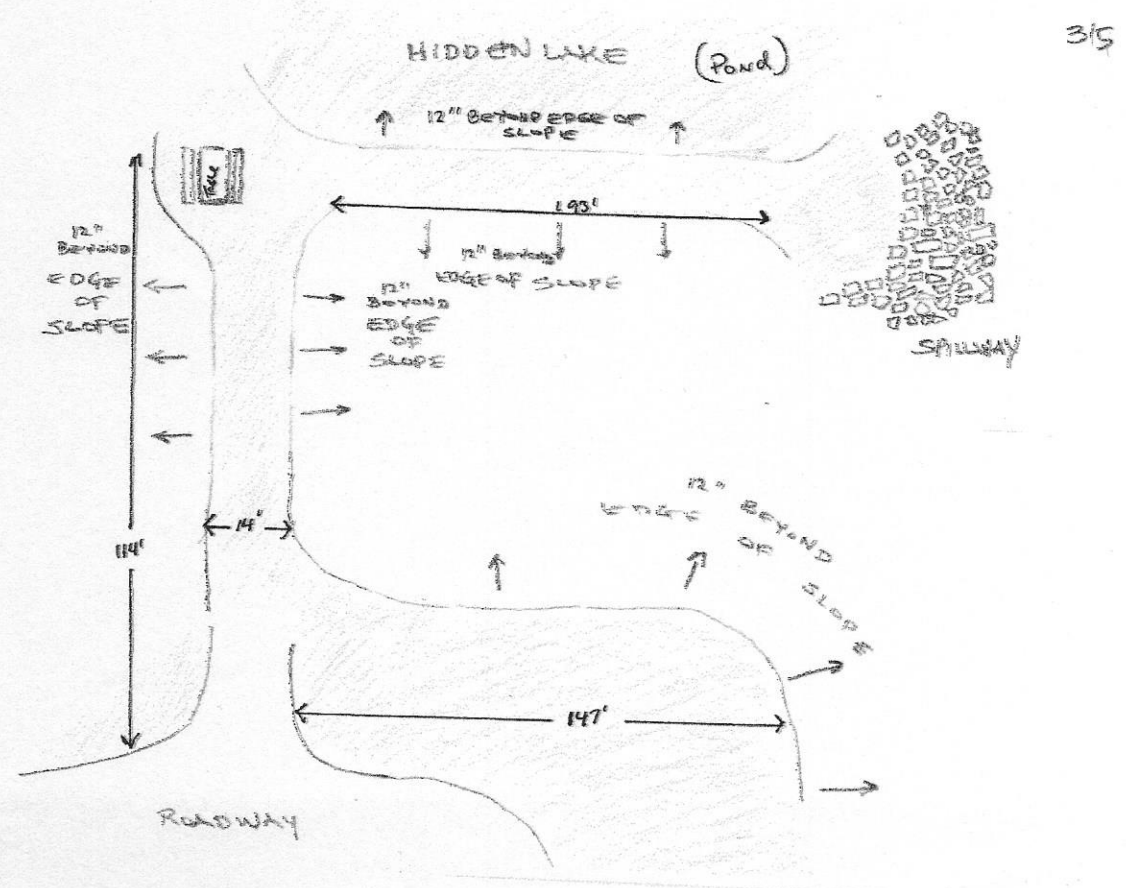 3/5
HIDDEN LAKE (Pond)
12" BEYOND EDGE OF
SLOPE
Table
193'
12"
BEYOND
EDGE
OF
SLOPE
12" Beyond
EDGE OF SLOPE
12"
BEYOND
EDGE
OF
SLOPE
SPILLWAY
12" BEYOND
EDGE OF SLOPE
14'
114'
147'
ROADWAY